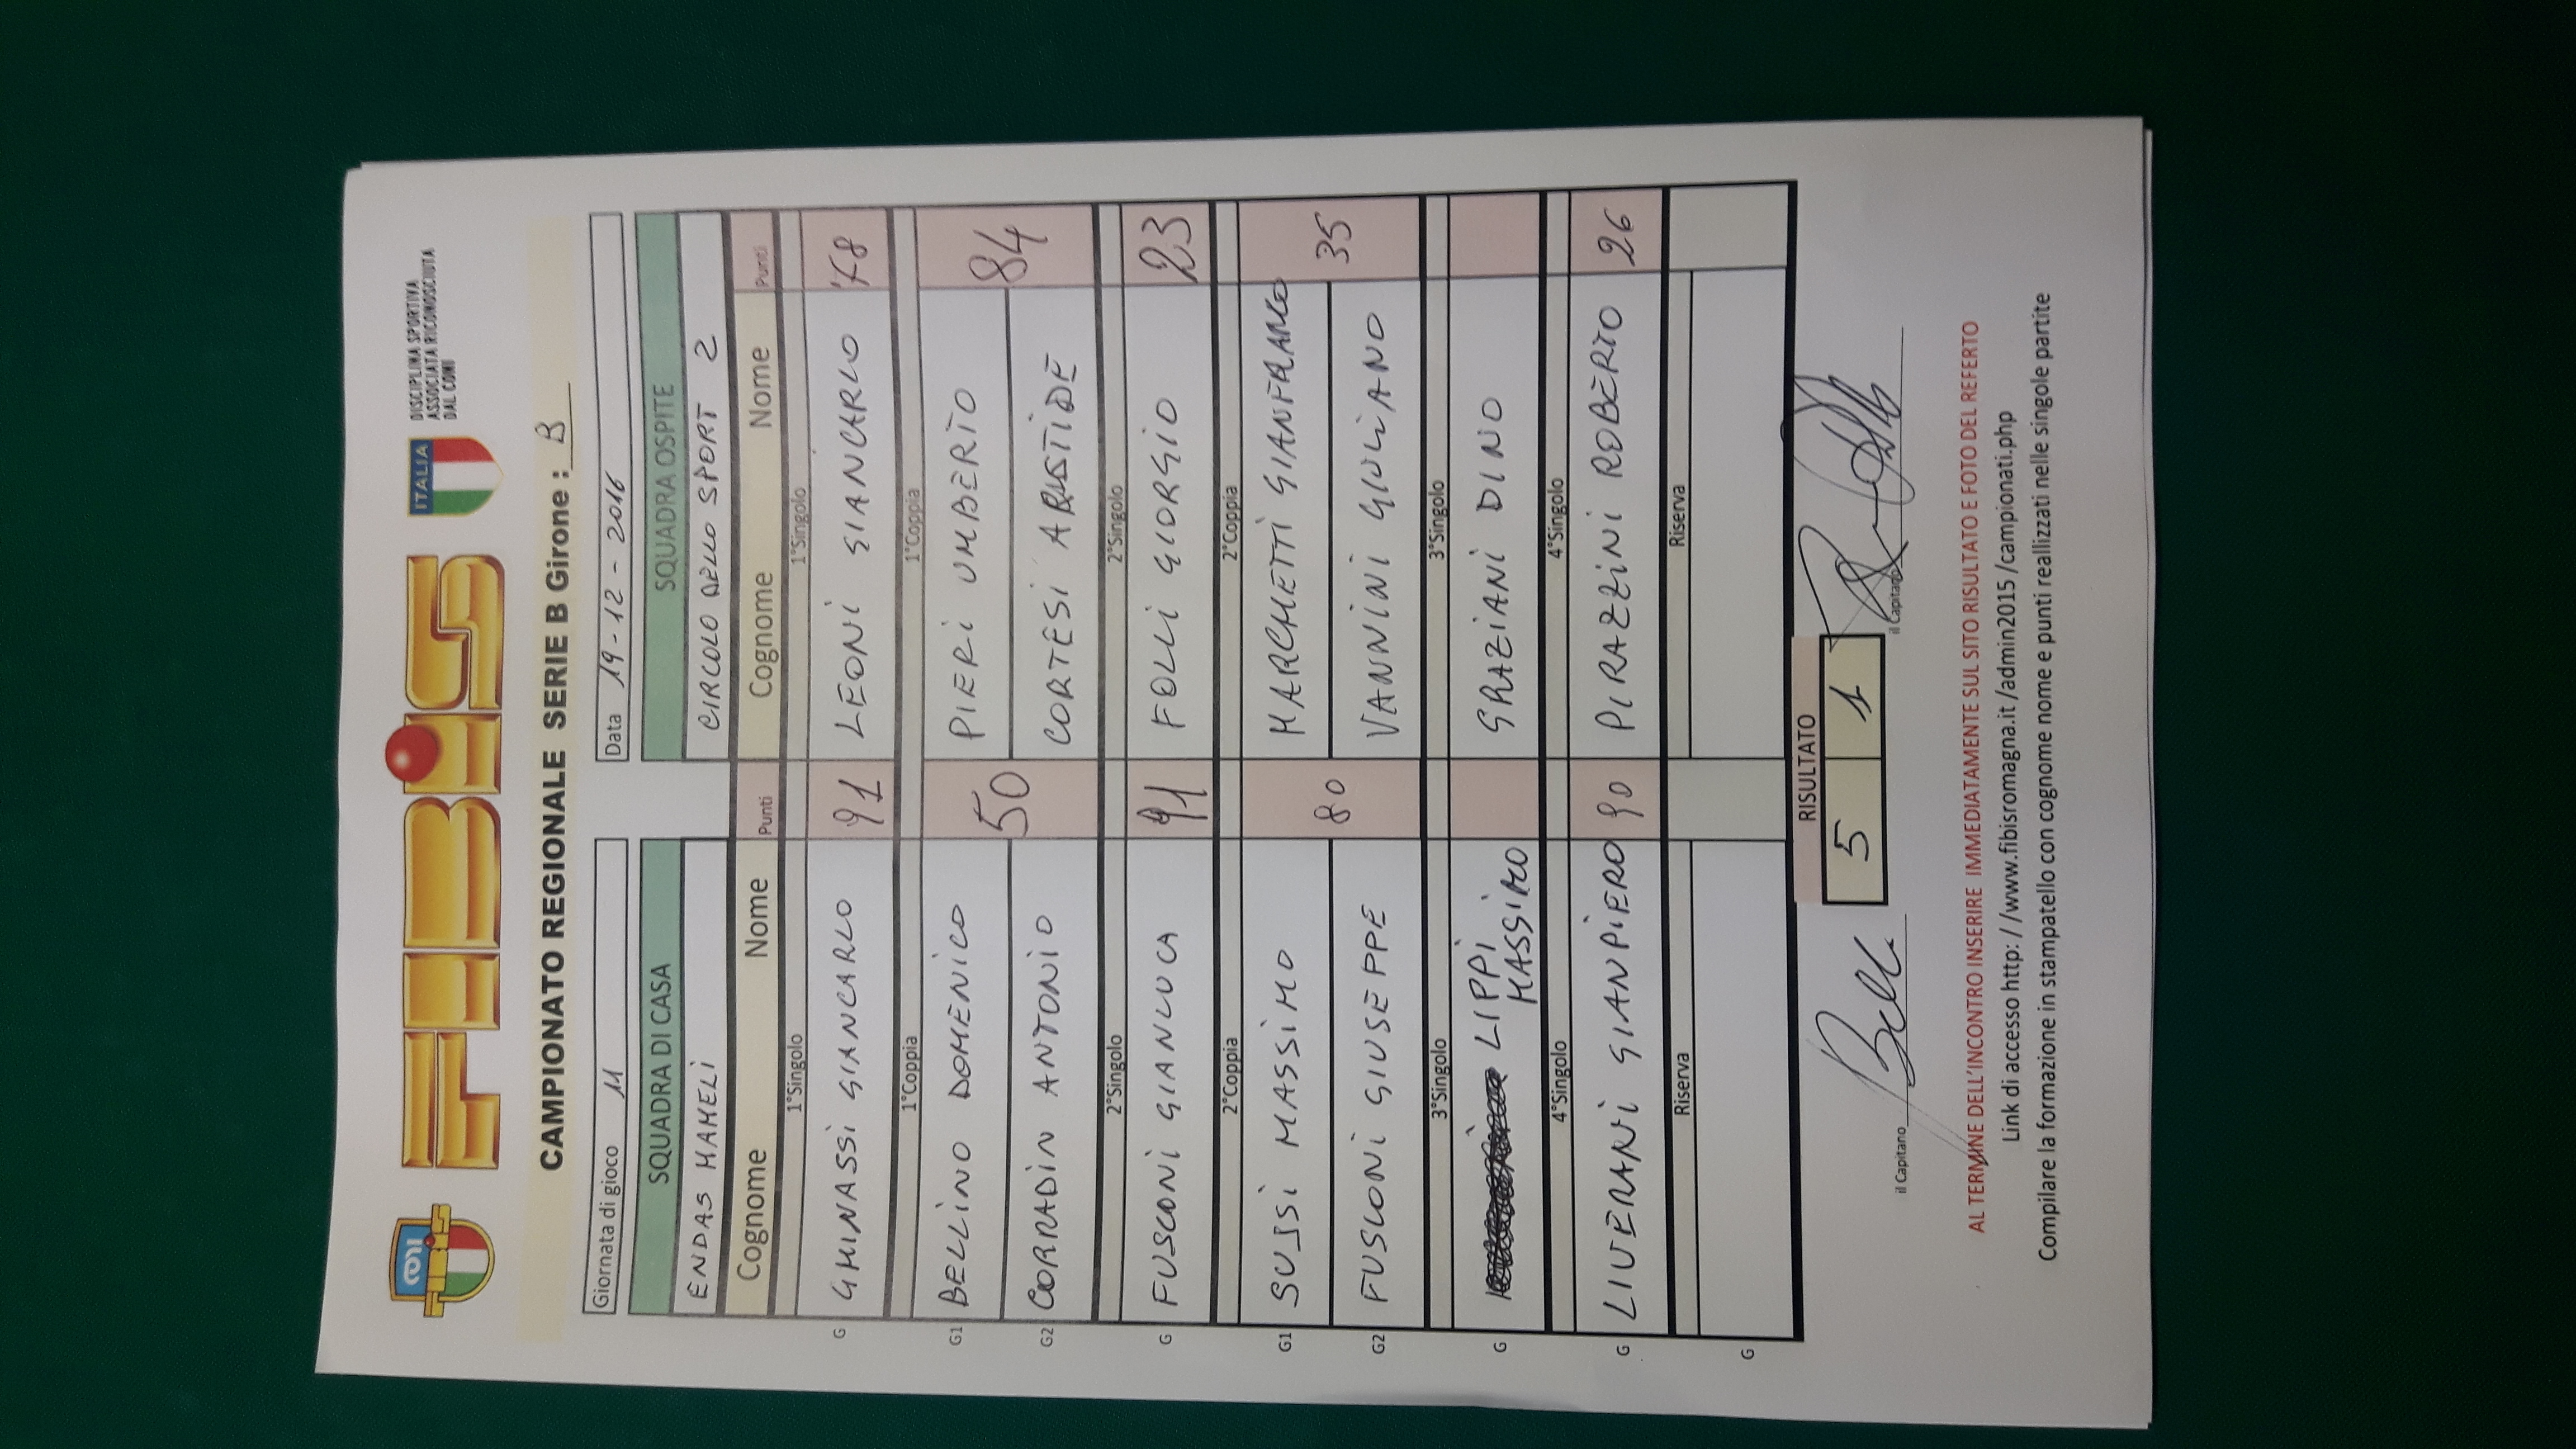 FIBIS
FIBIS
ITALIA
DISCIPLINA SPORTIVA
ASSOCIATA RICONOSCIUTA
DAL CONI
CAMPIONATO REGIONALE SERIE B Girone : B
Giornata di gioco 11 Data 19-12-2016
SQUADRA DI CASA SQUADRA OSPITE
ENDAS MAMELI CIRCOLO DELLO SPORT 2
Cognome Nome Punti Cognome Nome Punti
1°Singolo 1°Singolo
G GHINASSI GIANCARLO 91 LEONI GIANCARLO 78
1°Coppia 1°Coppia
G1 BELLINO DOMENICO 50 PIERI UMBERTO 84
G2 CORRADIN ANTONIO CORTESI ARISTIDE
2°Singolo 2°Singolo
G FUSCONI GIANLUCA 91 FOLLI GIORGIO 23
2°Coppia 2°Coppia
G1 SUSSI MASSIMO 80 MARCHETTI GIANFRANCO 35
G2 FUSCONI GIUSEPPE VANNINI GIULIANO
3°Singolo 3°Singolo
G LIPPI MASSIMO GRAZIANI DINO
4°Singolo 4°Singolo
G LIVERANI GIANPIERO 90 PIRAZZINI ROBERTO 26
Riserva Riserva
G
RISULTATO
5 1
il Capitano il Capitano
AL TERMINE DELL'INCONTRO INSERIRE IMMEDIATAMENTE SUL SITO RISULTATO E FOTO DEL REFERTO
Link di accesso http: / /www.fibisromagna.it /admin2015 /campionati.php
Compilare la formazione in stampatello con cognome nome e punti reallizzati nelle singole partite